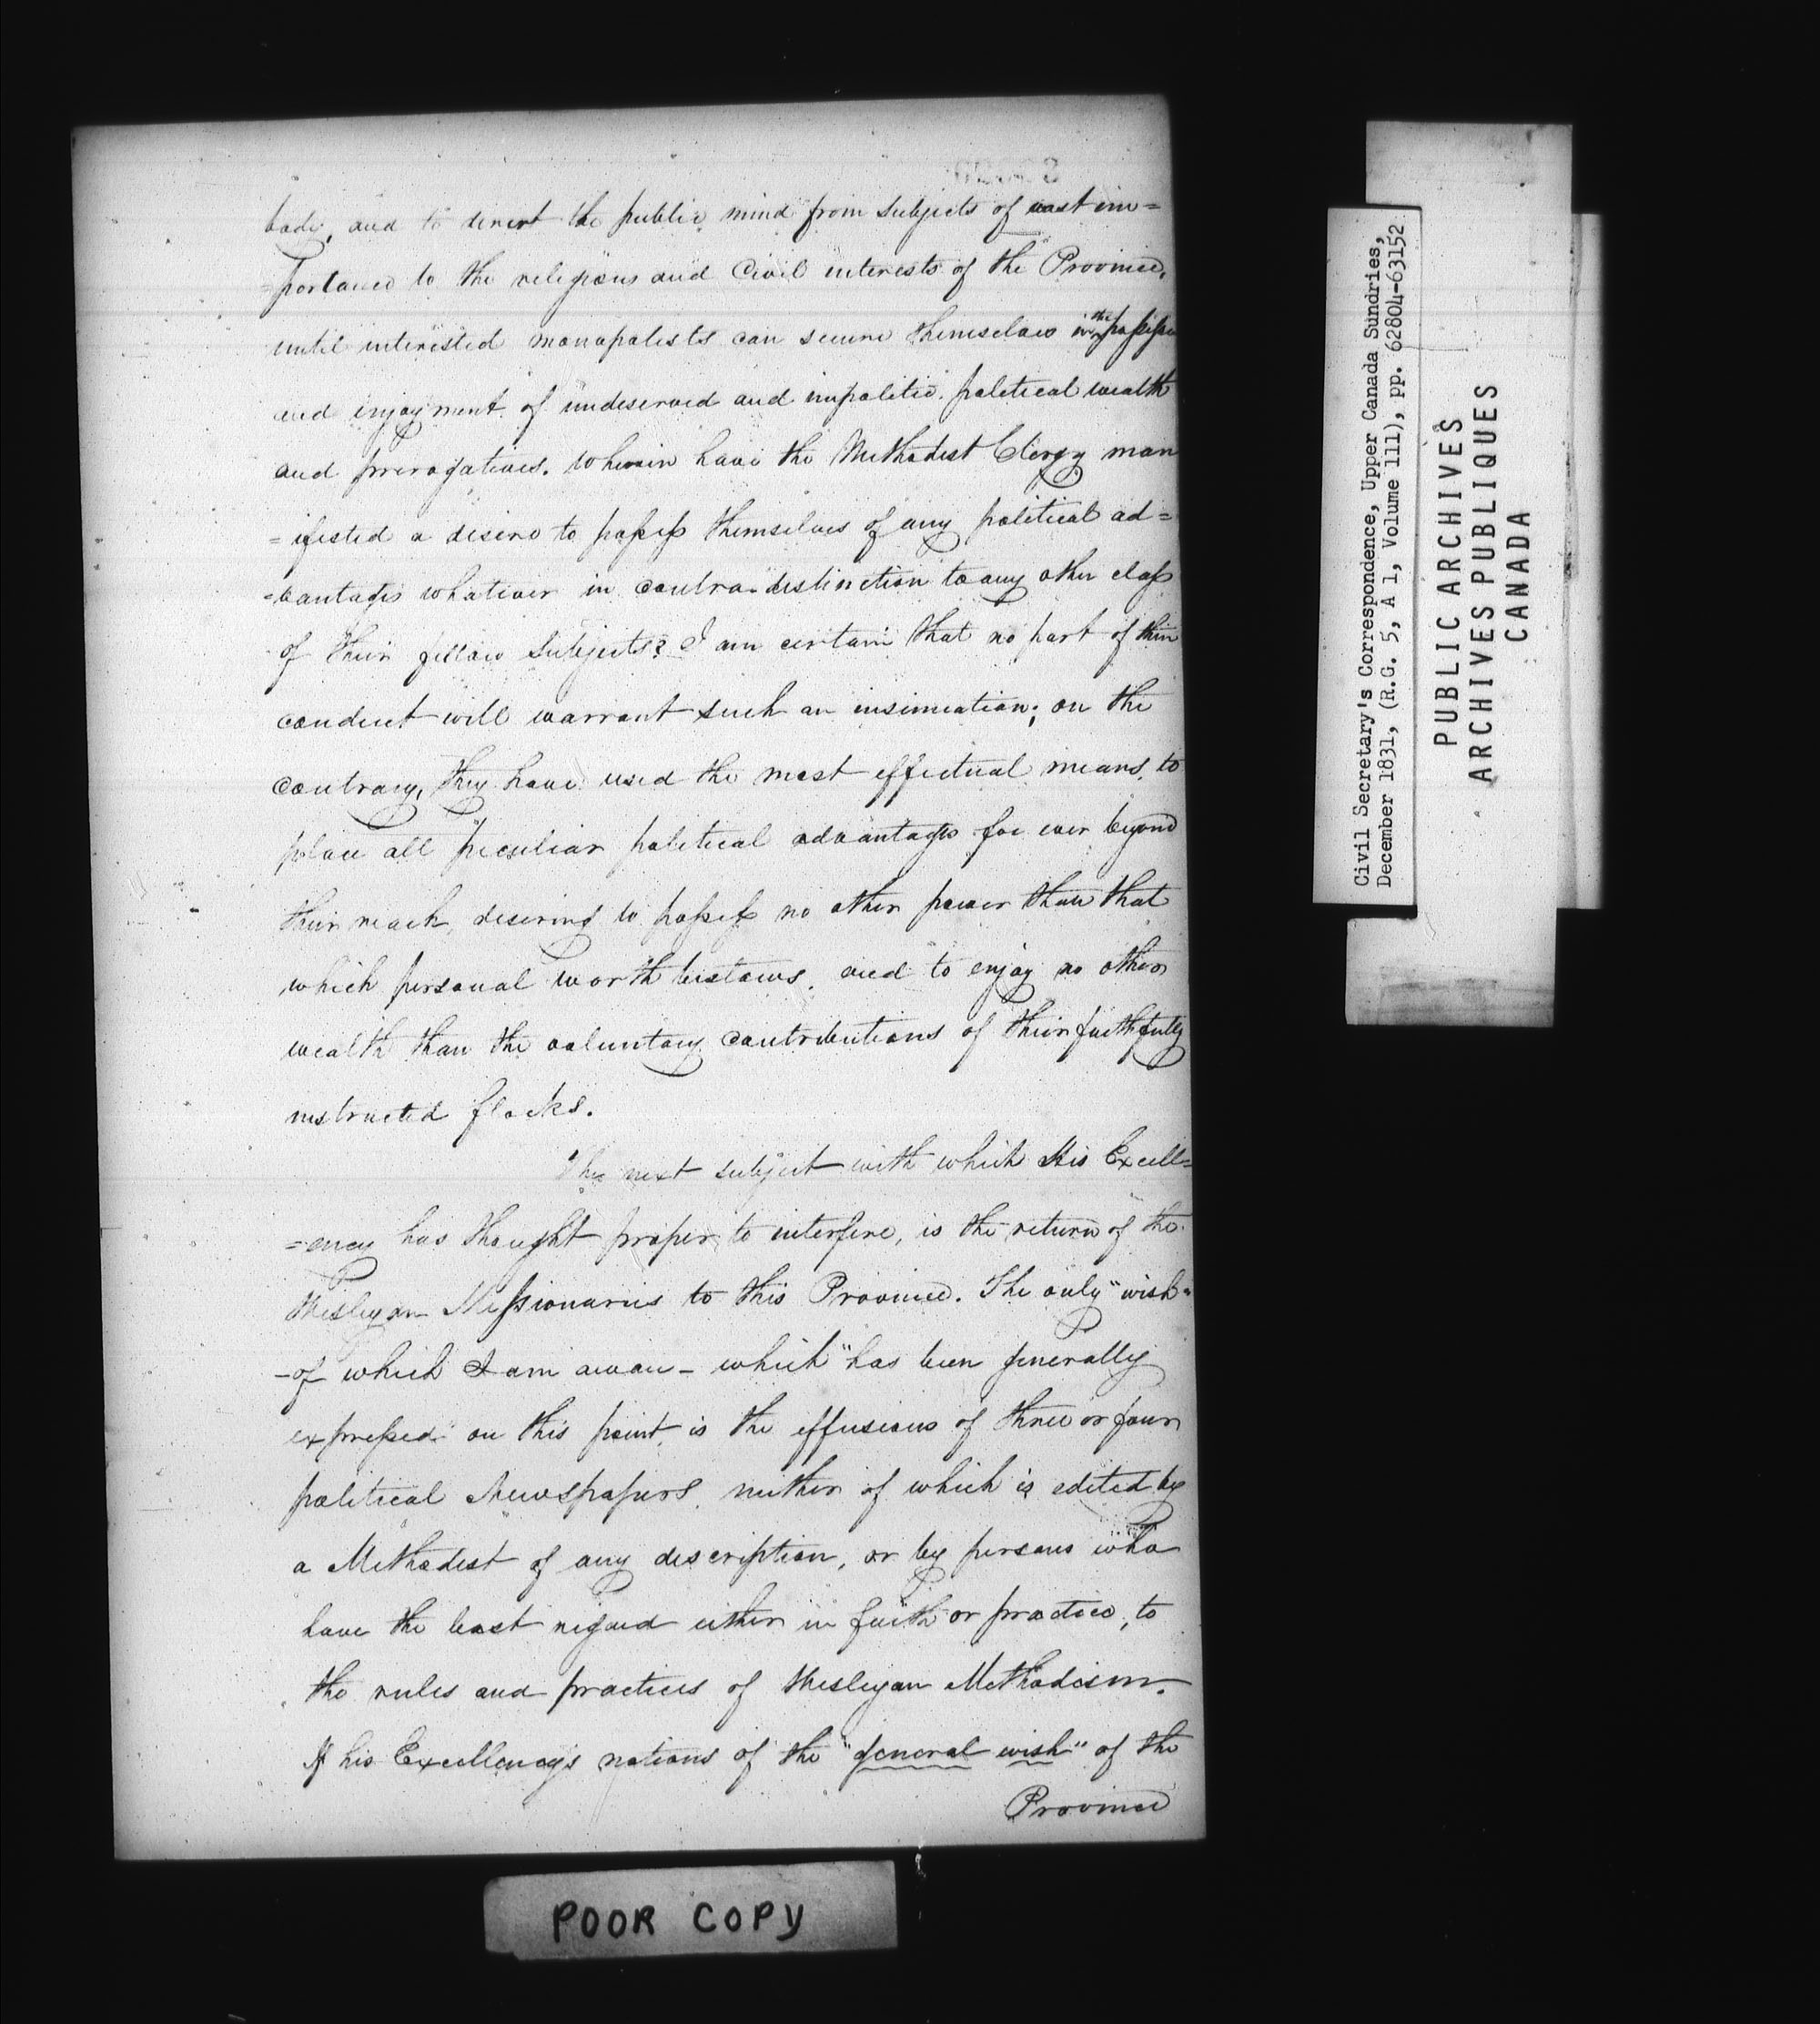 body, and to divert the public mind from subjects of vast im=
=portance to the religious and Civil interests of the Province,
until interested monopolists can secure themselves in the possession
and enjoyment of undeserved and impolitic political wealth
and prerogatives. Wherein have the Methodist Clergy man
=ifested a desire to possess themselves of any political ad=
=vantages whatever in contra-distinction to any other class
of their fellow Subjects? I am certain that no part of their
conduct will warrant such an insinuation; on the
contrary, they have used the most effectual means to
place all peculiar political advantages for ever beyond
their reach, desiring to possess no other power than that
which personal worth bestows, and to enjoy no other
wealth than the voluntary contributions of their faithfully
instructed flocks.
The next subject with which His Excell=
=ency has thought proper to interfere, is the return of the
Wesleyan Missionaries to this Province. The only "wish"
-of which I am aware- which "has been generally
expressed" on this point, is the effusions of three or four
political Newspapers, neither of which is edited by
a Methodist of any description, or by persons who
have the least regard either in faith or practice, to
the rules and practices of Wesleyan Methodism.
If his Excellency's notions of the "general wish" of the
Province
POOR COPY
Civil Secretary's Correspondence, Upper Canada Sundries,
December 1831, (R.G. 5, A 1, Volume 111), pp. 62804-63152
PUBLIC ARCHIVES
ARCHIVES PUBLIQUES
CANADA